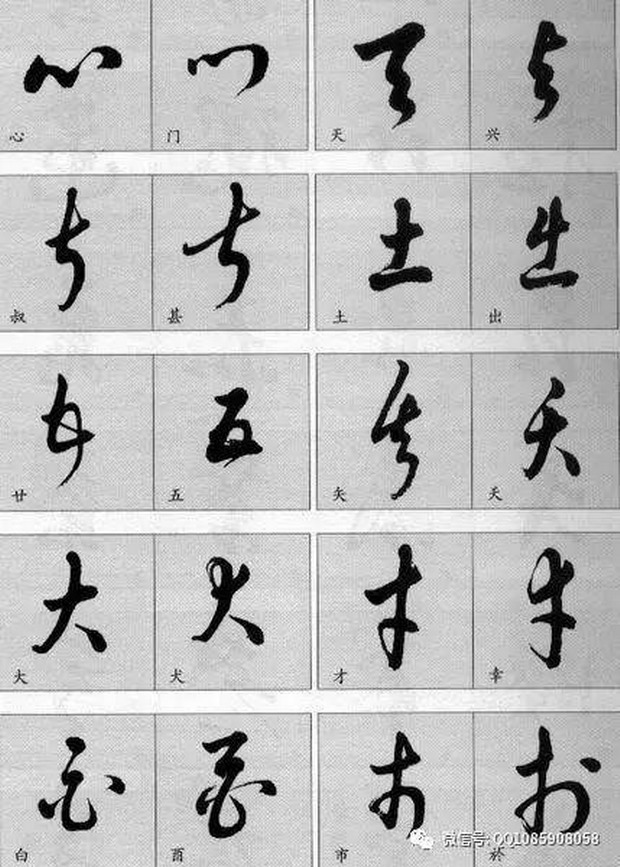 心 门 天 兴
叔 甚 土 出
廿 五 矢 夭
大 犬 才 幸
白 酉 市 於
微信号: QQ1085908058